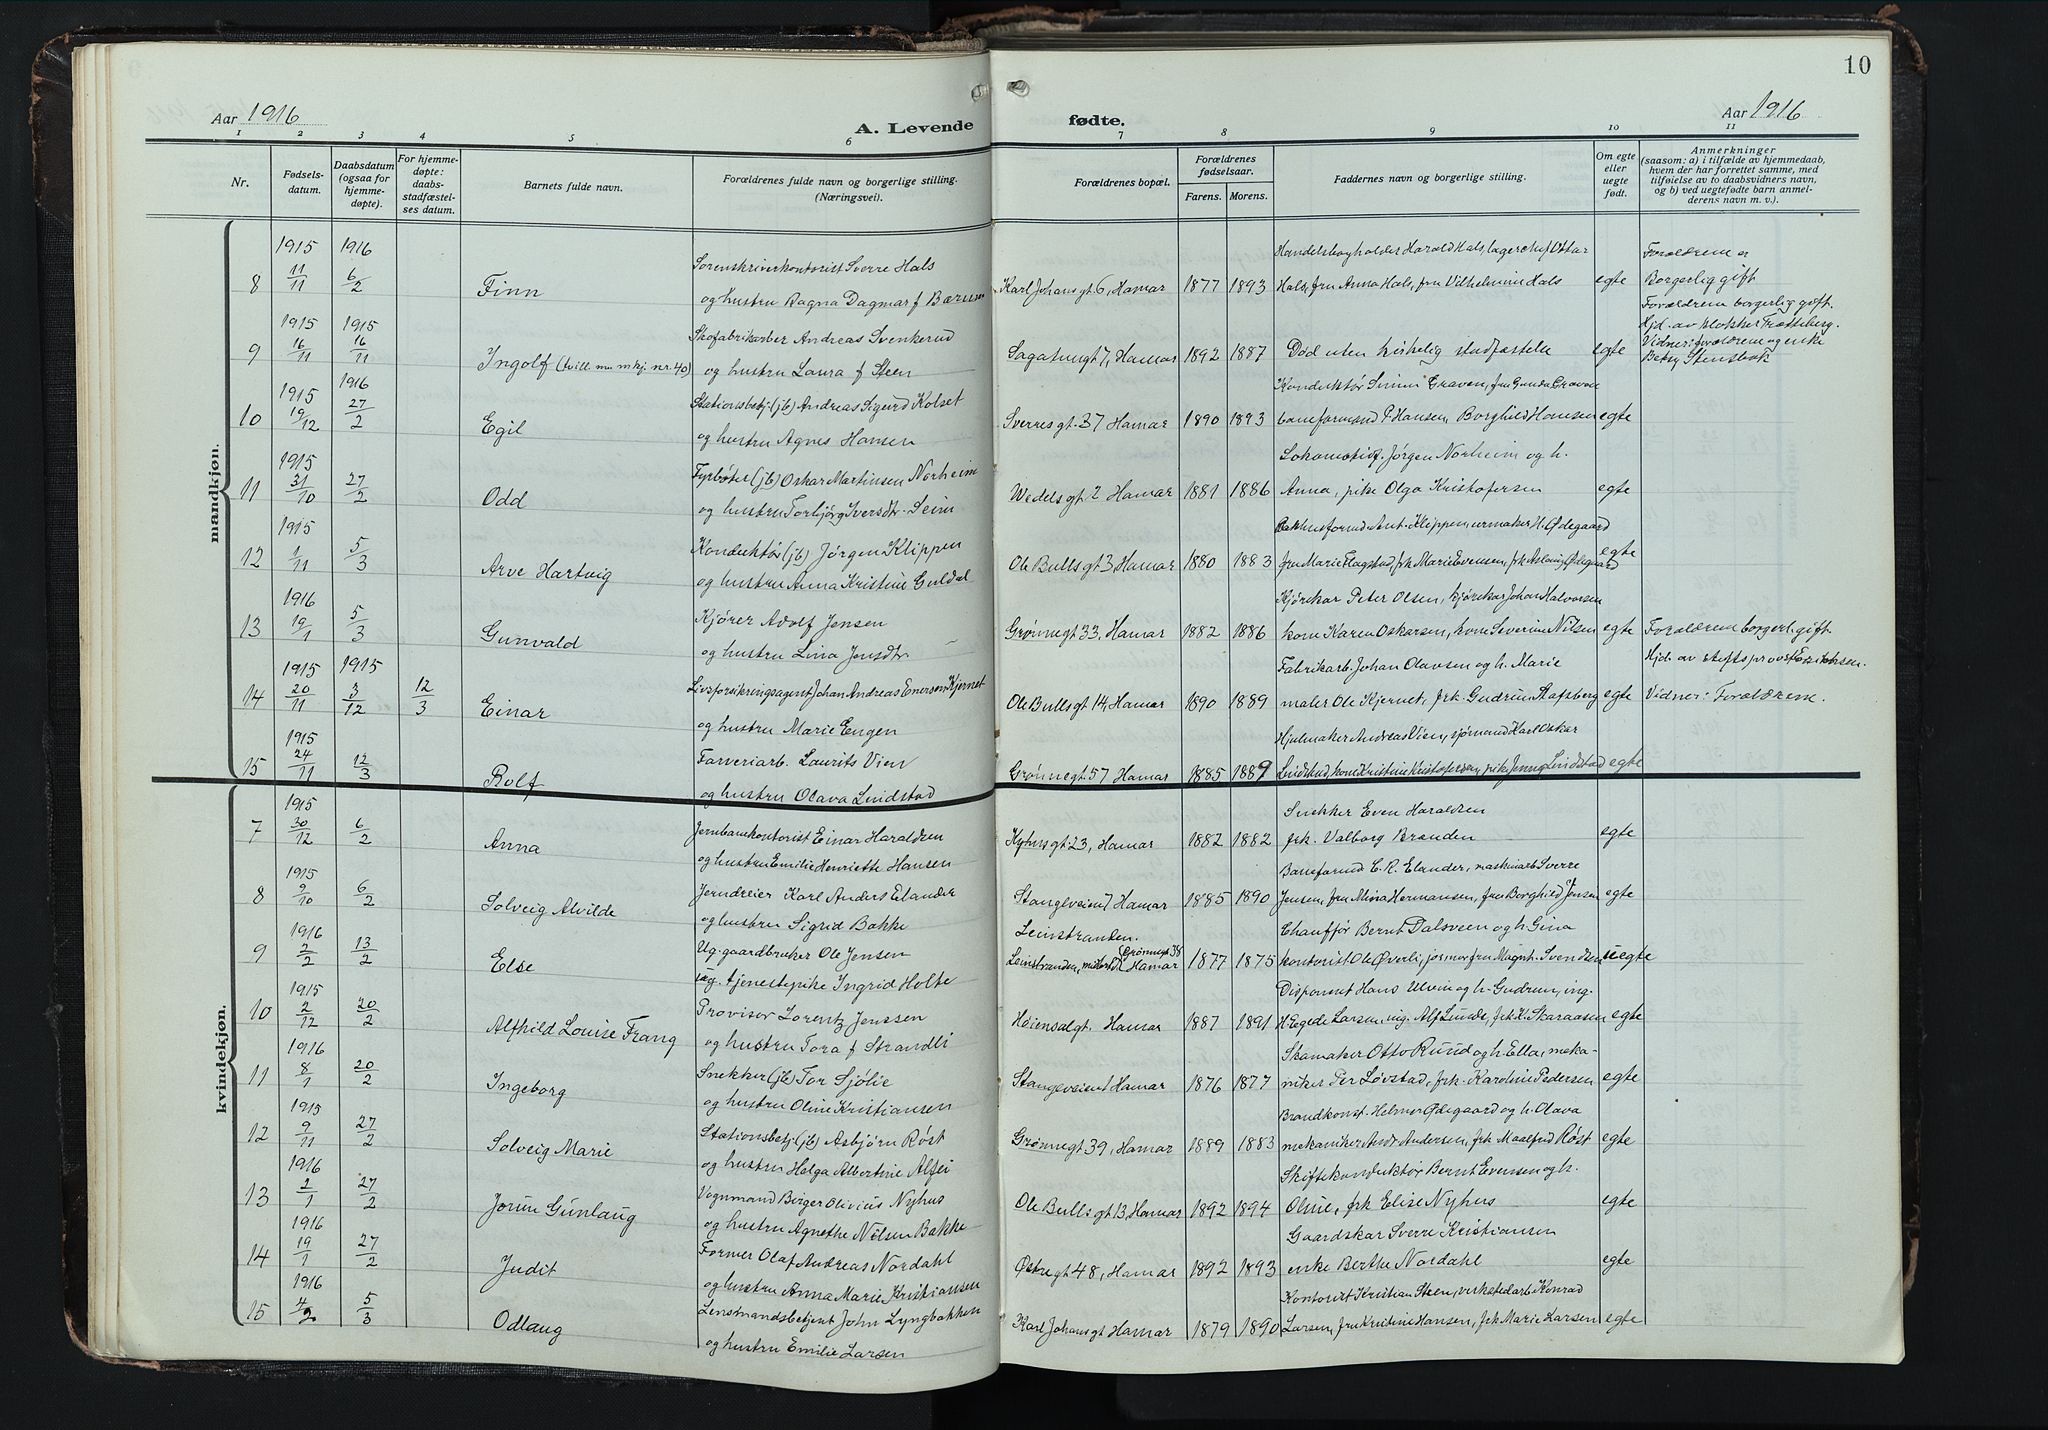 10
Aar 1916
A. Levende fødte.
Aar 1916
1 2 3 4 5 6 7 8 9 10 11
Nr.
Fødsels-
datum.
Daabsdatum
(ogsaa for
hjemme-
døpte).
For hjemme-
døpte:
daabs-
stadfæstel-
ses datum.
Barnets fulde navn.
Forældrenes fulde navn og borgerlige stilling.
(Næringsvei).
Forældrenes bopæl.
Forældrenes
fødselsaar.
Farens. Morens.
Faddernes navn og borgerlige stilling.
Om egte
eller
uegte
født.
Anmerkninger
(saasom: a) i tilfælde av hjemmedaab,
hvem der har forrettet samme, med
tilføielse av to daabsvidners navn,
og b) ved uegtefødte barn anmel-
derens navn m. v.).
mandkjøn.
1915 1916 Sorenskriverkontorist Sverre Hals Handelsbogholder Harald Hals, lagerchef Ottar Forældrene er
8 11/11 6/2 Finn og hustru Ragna Dagmar f Karl Johansgt. 6, Hamar 1877 1893 Hals, fru Anna Hals, fru Vilhelmine Hals egte Borgerlig gift
1915 1915 Skofabrikarber Andreas Svenkerud Forældrene borgerlig gift.
9 16/11 16/11 Ingolf (tvill. m. mkj. nr. 40) og hustru Laura f Steen Sagatungt 7, Hamar 1892 1887 Død uten kirkelig stadfæstelse egte Hjd. av klokker Frætteberg.
Vidner: forældrene og enke
Betsy Stensbak
1915 1916 Stationsbetj. (jb) Andreas Sigurd Kolset Konduktør Simen Graven, fru Gunda Graven
10 19/12 27/2 Egil og hustru Agnes Hansen Sverresgt. 37 Hamar 1890 1893 baneformand P Hansen, Borghild Hansen egte
1915 Fyrbøter (jb) Oskar Martinsen Norheim Lokomotivf. Jørgen Norheim og h.
11 31/10 27/2 Odd og hustru Torbjørg Iversdtr. Seim Wedelsgt 2 Hamar 1881 1886 Anna, pike Olga Kristofersen egte
1915 Konduktør (jb) Jørgen Klippen Pakhusformd Ant. Klippen, urmaker H. Ødegaard
12 1/11 5/3 Arve Hartvig og hustru Anna Kristine Guldal Ole Bullsgt 3, Hamar 1880 1883 fru Marie Flagstad, frk Marie Evensen, frk Aslaug Ødegaard egte
1916 Kjører Adolf Jensen Kjørekar Peter Olsen, kjørekar Johan Halvorsen
13 19/1 5/3 Gunvald og hustru Lina Jensdtr. Grønnegt 33, Hamar 1882 1886 kone Karen Oskarsen, kone Severine Nilsen egte Forældrene borgerl. gift
1915 1915 Livsforsikringsagent Johan Andreas Enersen Kjernet Fabrikarb. Johan Olavsen og h. Marie Hjd. av stiftsprovst
14 20/11 3/12 12/3 Einar og hustru Marie Engen Ole Bullsgt 14, Hamar 1890 1889 maler Ole Kjernet, frk. Gudrun Stafsberg egte Vidner: Forældrene.
1915 Farveriarb. Laurits Vien Hjulmaker Andreas Vien, sjømand Karl Oskar
15 24/11 12/3 Rolf og hustru Olava Lindstad Grønnegt. 57 Hamar 1885 1889 Lindstad, kone Kristine Kristofersen, pike Jenny Lindstad egte
kvindekjøn.
1915 Jernbanekontorist Einar Haraldsen Snekker Even Haraldsen
7 30/12 6/2 Anna og hustru Emilie Henriette Hansen Kyhnsgt. 23, Hamar 1882 1882 frk. Valborg Branden egte
1915 Jerndreier Karl Anders Elander Baneformd E. R. Elander, maskinarb Sverre
8 9/10 6/2 Solveig Alvilde og hustru Sigrid Bakke Stangeveien 7 Hamar 1885 1890 Jensen, fru Mina Hermansen, fru Borghild Jensen egte
1916 Ug. gaardbruker Ole Jensen Leinstranden. Chauffør Bernt Dalsveen og h. Gina
9 2/2 13/2 Else ug. tjenestepike Ingrid Holte Leinstranden, Grønnegt 38 Hamar 1877 1875 kontorist Ole Øverli, josmorfru Magnh. Svendsen uegte
1915 Provisor Lorentz Jenssen Disponent Hans Ulvin og h. Gudrun, ing.
10 2/12 20/2 Alfhild Louise Frang og hustru Tora f Strandli Høiensalgt. Hamar 1887 1891 H Egede Larsen, ing. Alf Lunde, frk K. Skaraasen egte
1916 Snekker (jb) Tor Sjølie Skomaker Otto Ruud og h Ella, meka-
11 8/1 20/2 Ingeborg og hustru Oline Kristiansen Stangeveien 1 Hamar 1876 1877 niker Per Løvstad, frk. Karoline Pedersen egte
1915 Stationsbetj. (jb) Asbjørn Røst Brandkonst. Helmer Ødegaard og h. Olava
12 9/11 27/2 Solveig Marie og hustru Helga Albertine Alfei Grønnegt 39, Hamar 1889 1883 mekaniker Andr Andersen, frk Maalfrid Røst egte
1916 Vognmand Berger Olivius Nyhus Skiftekonduktør Bernt Evensen og h.
13 2/1 27/2 Jorun Gunlaug og hustru Agnethe Nilsen Bakke Ole Bullsgt 13, Hamar 1892 1894 Oline, frk Elise Nyhus egte
1916 Former Olaf Andreas Nordahl Gaardskar Sverre Kristiansen
14 19/1 27/2 Judit og hustru Anna Marie Kristiansen Østregt 48, Hamar 1892 1893 enke Berthe Nordahl egte
1916 Lensmandsbetjent John Lyngbakken Kontorist Kristian Steen, verkstedarb Konrad
15 4/2 5/3 Odlaug og hustru Emilie Larsen Karl Johansgt Hamar 1879 1890 Larsen, fru Kristine Hansen, frk Marie Larsen egte